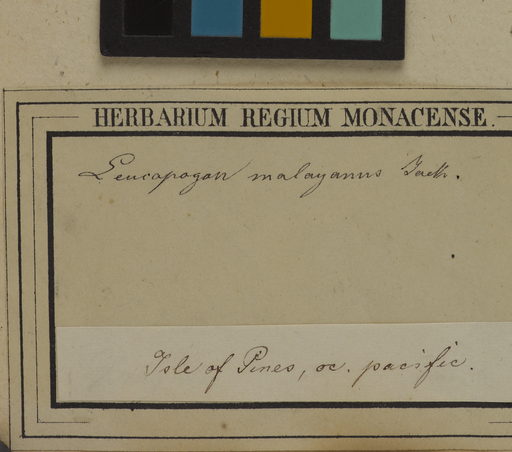 HERBARIUM REGIUM MONACENSE.
Leucopogon malayanus Jack.
Isle of Pines, oc. pacific.